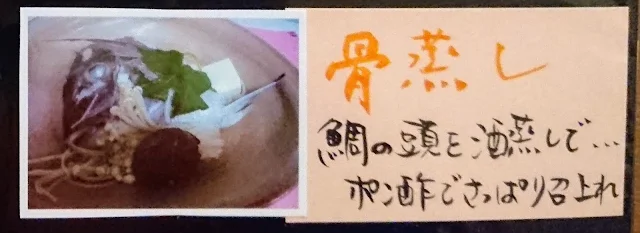 骨蒸し
鯛の頭を酒蒸しで…
ポン酢でさっぱり召上れ